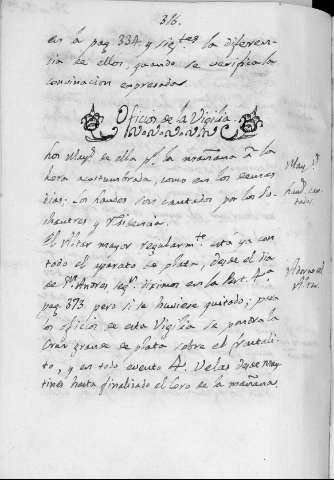 316.
en la pag. 334. y sig.tes la diferen-
cia de ellos, quando se verifica la
convinacion expresada
Oficios de la Vigilia.
Los May.s de ella p.r la mañana a la
hora acostumbrada, como en los demas
dias: los laudes son cantados por los So-
chantres y Residencia.
El Altar mayor regularm.te está ya con
todo el aparato de plata, desde el dia
de S.n Andres seg.n diximos en la Part. 4.a
pag. 373. pero si se huviese quitado; para
los oficios de esta Vigilia se pondra la
Cruz grande de plata sobre el frontali-
to, y en todo evento 4. Velas desde May-
tines hasta finalizado el Coro de la mañana.
May.s
laud.s can-
tados.
Adorno del
Altar.